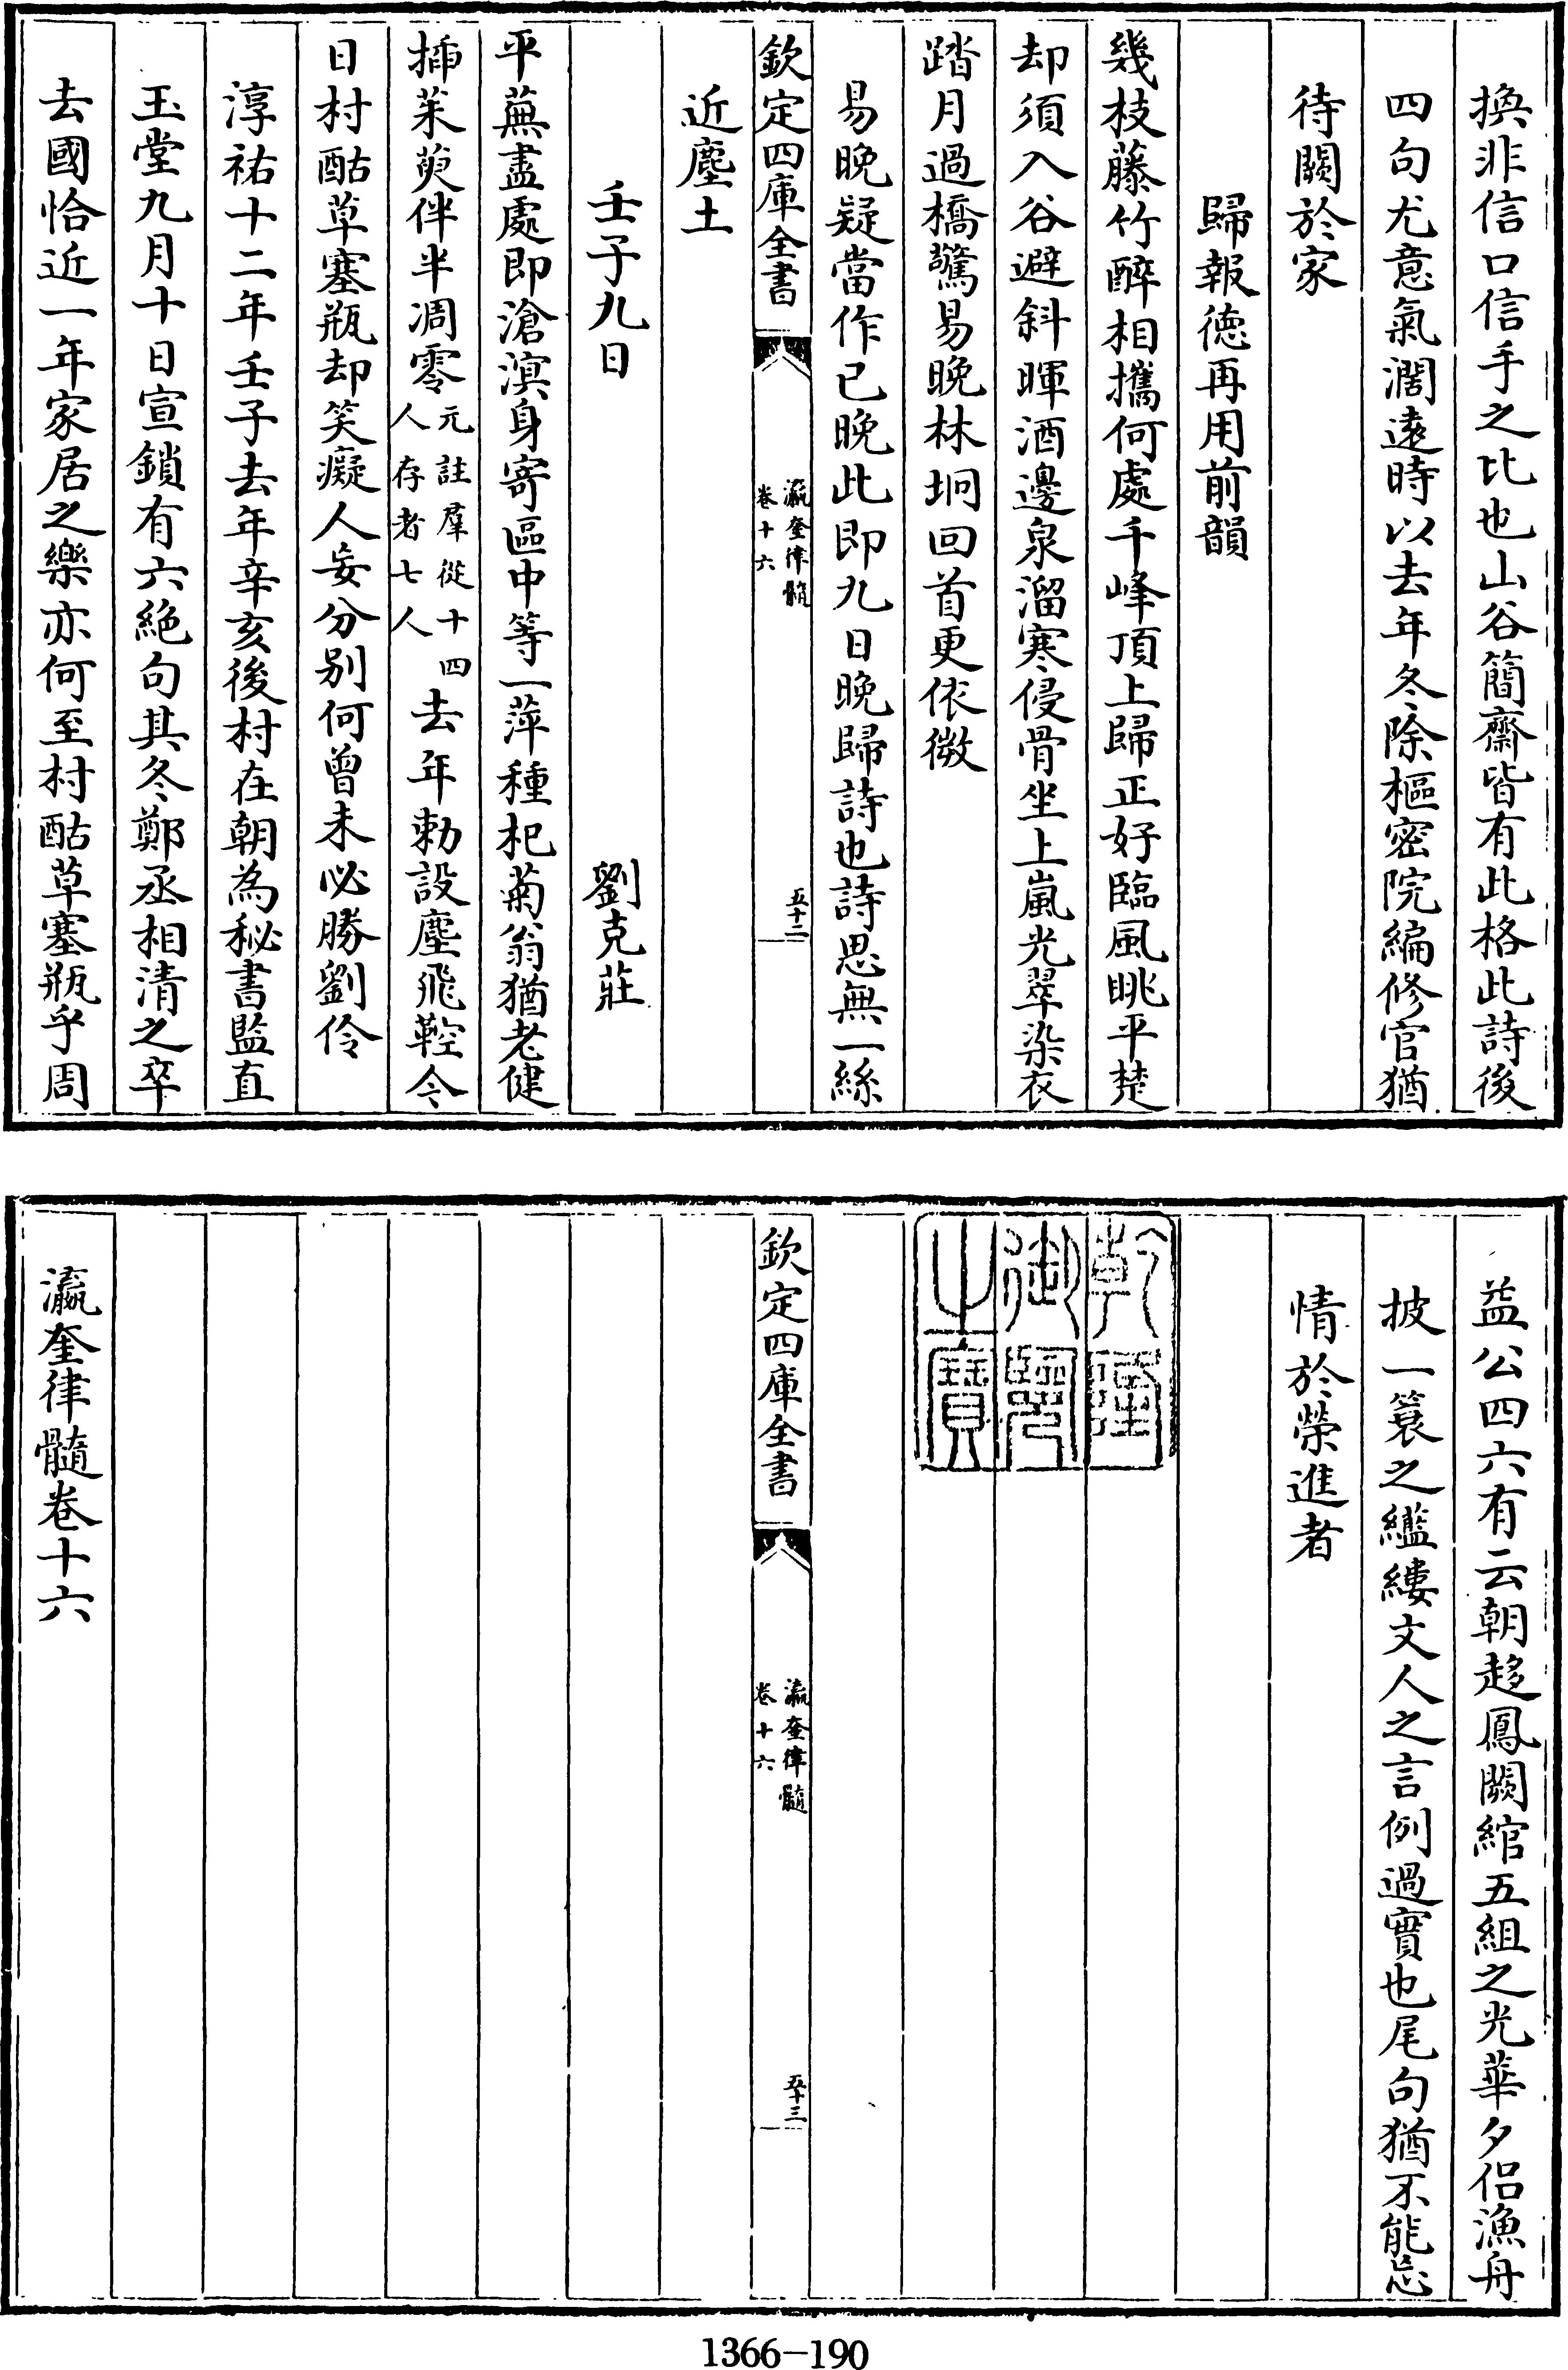 換非信口信手之比也山谷簡齋皆有此格此詩後
四句尤意氣濶逺時以去年冬除樞密院編修官猶
待闕於家
歸報徳再用前韻
幾枝藤竹醉相攜何處千峰頂上歸正好臨風眺平楚
却須入谷避斜暉酒邊泉溜寒侵骨坐上嵐光翠染衣
踏月過橋驚易晚林坰回首更依微
易晚疑當作已晚此即九日晚歸詩也詩思無一絲
欽定四庫全書
瀛奎律髓
卷十六
五十二
近塵土
壬子九日
劉克莊
平蕪盡處即滄溟身寄區中等一萍種杞菊翁猶老健
揷茱萸伴半凋零元註羣從十四人存者七人去年勅設塵飛鞚今
日村酤草塞瓶却笑癡人妄分别何曾未必勝劉伶
淳祐十二年壬子去年辛亥後村在朝為秘書監直
玉堂九月十日宣鎖有六絶句其冬鄭丞相清之卒
去國恰近一年家居之樂亦何至村酤草塞瓶乎周
益公四六有云朝趍鳳闕綰五組之光華夕侣漁舟
披一簑之繿縷文人之言例過實也尾句猶不能忘
情於榮進者
乾隆
御覽
之寶
欽定四庫全書
瀛奎律髓
卷十六
五十三
瀛奎律髓卷十六
1366-190